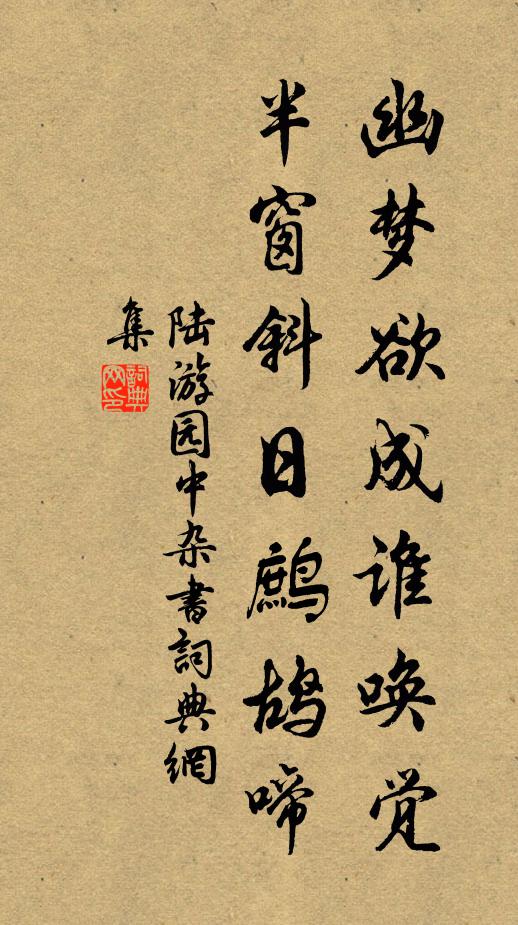 幽梦欲成谁唤觉
半窗斜日鹧鸪啼
陆游园中杂書詞典網
集
詞典網印